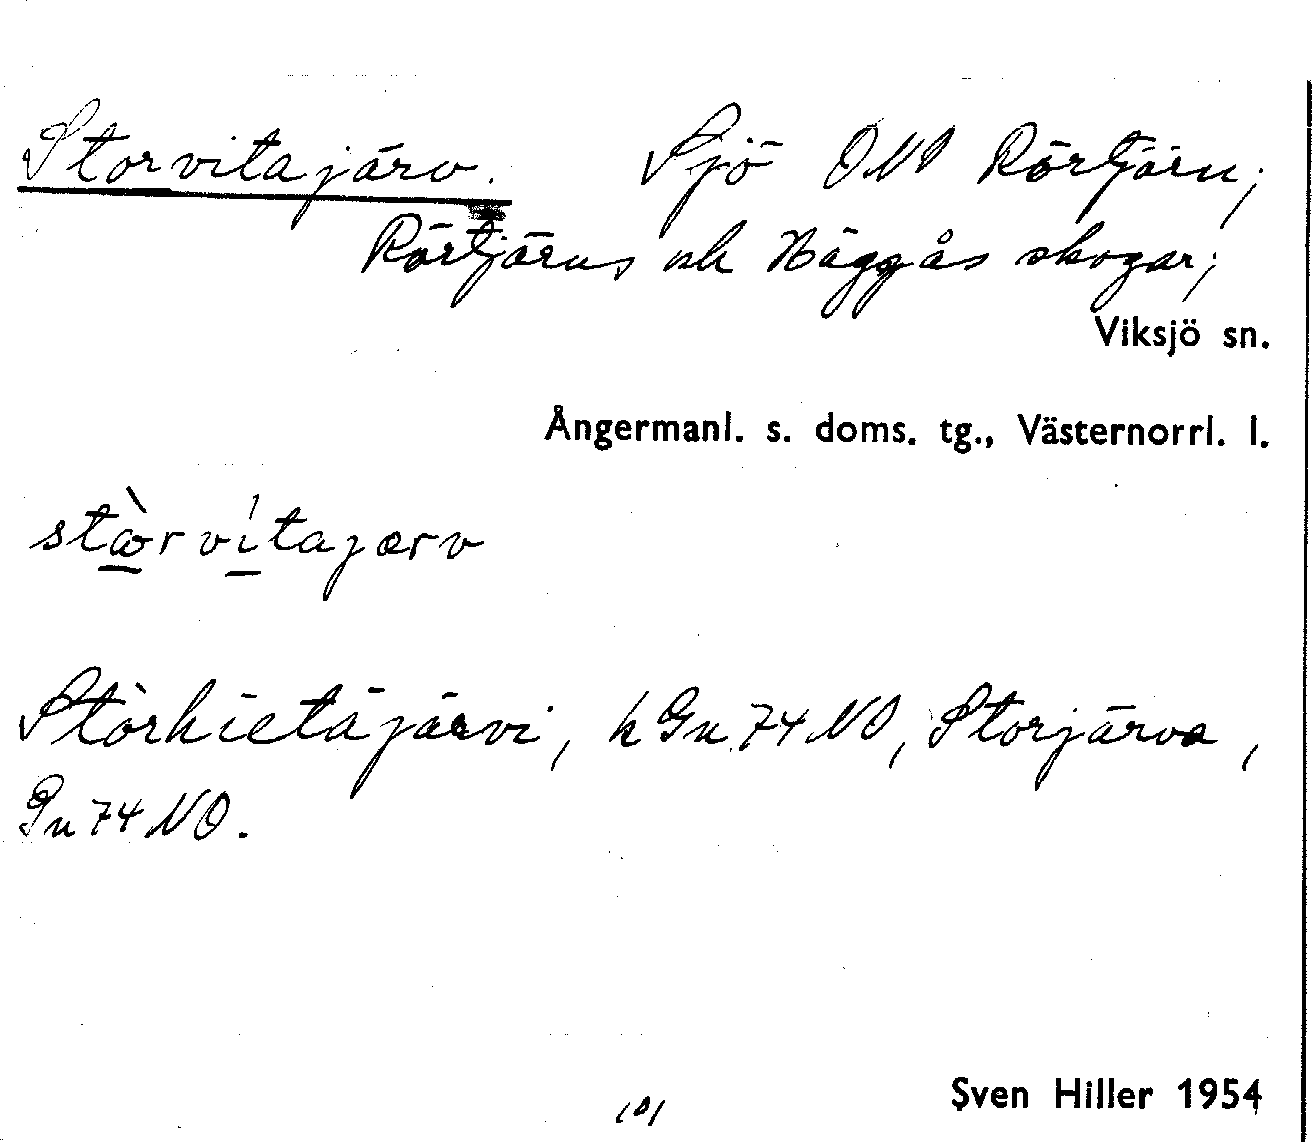 Storvitajärv. Sjö ONO Rörtjärn;
Rörtjärns och Häggås skogar;
Viksjö sn.
Ångermanl. s. doms. tg., Västernorrl. l.
stòrvítajærv
Storhietajärvi, k Gn 74 NO, Storjärva,
Gn 74 NO.
Sven Hiller 1954